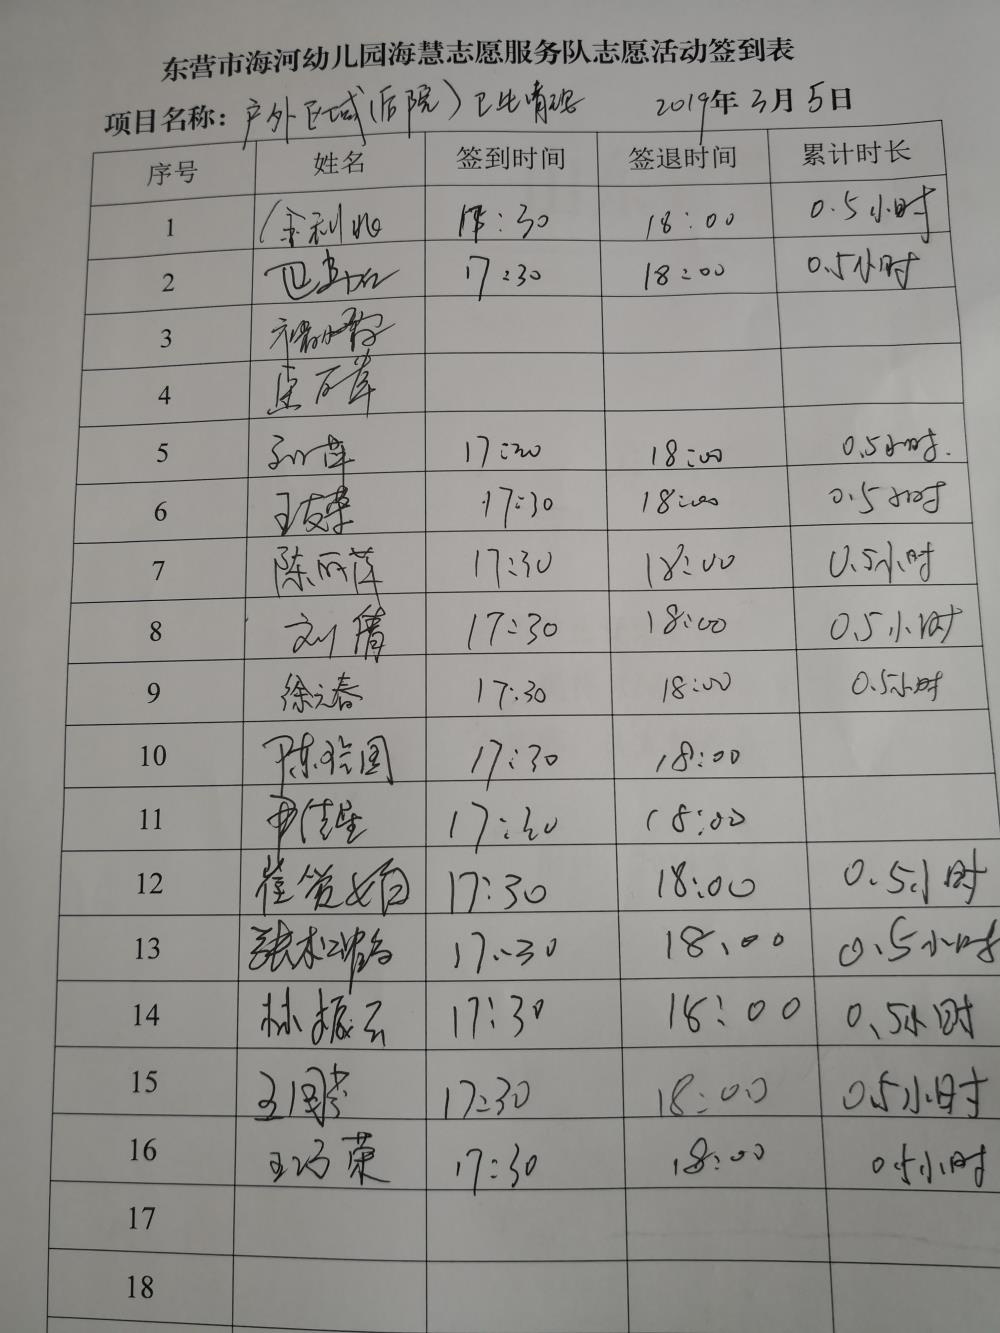 东营市海河幼儿园海慧志愿服务队志愿活动签到表
项目名称：户外区域(后院)卫生清理 2019年3月5日
序号 姓名 签到时间 签退时间 累计时长
1 17:30 18:00 0.5小时
2 17:30 18:00 0.5小时
3
4
5 17:20 18:00 0.5小时.
6 王友荣 17:30 18:00 0.5小时
7 陈丽萍 17:30 18:00 0.5小时
8 刘倩 17:30 18:00 0.5小时
9 徐元春 17:30 18:00 0.5小时
10 17:30 18:00
11 17:30 18:00
12 17:30 18:00 0.5小时
13 17:30 18:00 0.5小时
14 林振云 17:30 18:00 0.5小时
15 17:30 18:00 0.5小时
16 王巧荣 17:30 18:00 0.5小时
17
18